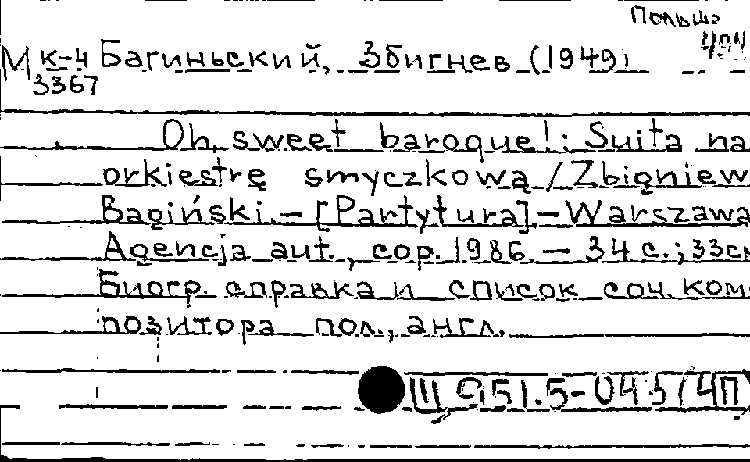 Польша
М к-4 Багиньский, Збигнев (1949)
3367
Oh, sweet baroque!: Suita na
orkiestrę smyczkową / Zbigniew
Bagiński. – [Partytura] – Warszawa
Agencja aut., cop. 1986. – 34 с.; 33см
Биогр. справка и список соч. ком-
позитора пол., англ.
Щ 951.5-04